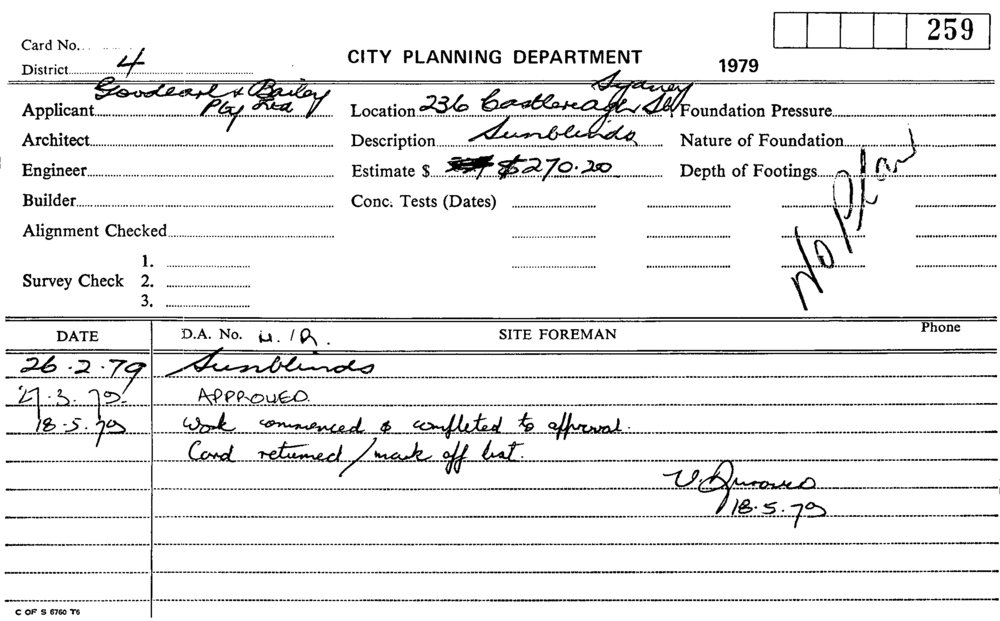 259
Card No.
CITY PLANNING DEPARTMENT 1979
District 4
Applicant Goodearl & Bailey Pty Ltd
Location 236 Castlereagh St, Sydney
Foundation Pressure
Architect
Description Sunblinds
Nature of Foundation
Engineer
Estimate $ $270.20
Depth of Footings
Builder
Conc. Tests (Dates)
No Plan
Alignment Checked
1.
Survey Check 2.
3.
DATE D.A. No. H./R. SITE FOREMAN Phone
26.2.79 Sunblinds
27.3.79. APPROVED.
18.5.79 Work commenced & completed to approval.
Card returned/mark off list.
18.5.79
C OF S 6760 T6